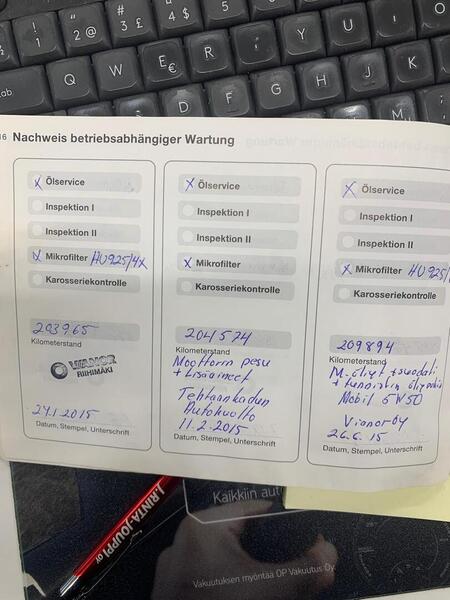 ! 1
" 2 @
3 £
4 $
5
Q
W
E €
R
T
Y
U
I
D
F
G
H
J
K
16 Nachweis betriebsabhängiger Wartung
x Ölservice
Inspektion I
Inspektion II
x Mikrofilter HU925/4x
Karosseriekontrolle
203965
Kilometerstand
VIANOR
RIIHIMÄKI
24.1.2015
Datum, Stempel, Unterschrift
x Ölservice
Inspektion I
Inspektion II
x Mikrofilter
Karosseriekontrolle
204574
Kilometerstand
Moottorin pesu
+ Lisäaineet
Tehtaankadun
Autohuolto
11.2.2015
Datum, Stempel, Unterschrift
x Ölservice
Inspektion I
Inspektion II
x Mikrofilter HU925/
Karosseriekontrolle
209894
Kilometerstand
M.öljyt + suodati
+ tunnistin
Mobil 5W50
Vianor oy
26.6.15
Datum, Stempel, Unterschrift
J.RINTA-JOUPPI OY
Kaikkiin aut
Vakuutuksen myöntää OP Vakuutus Oy.